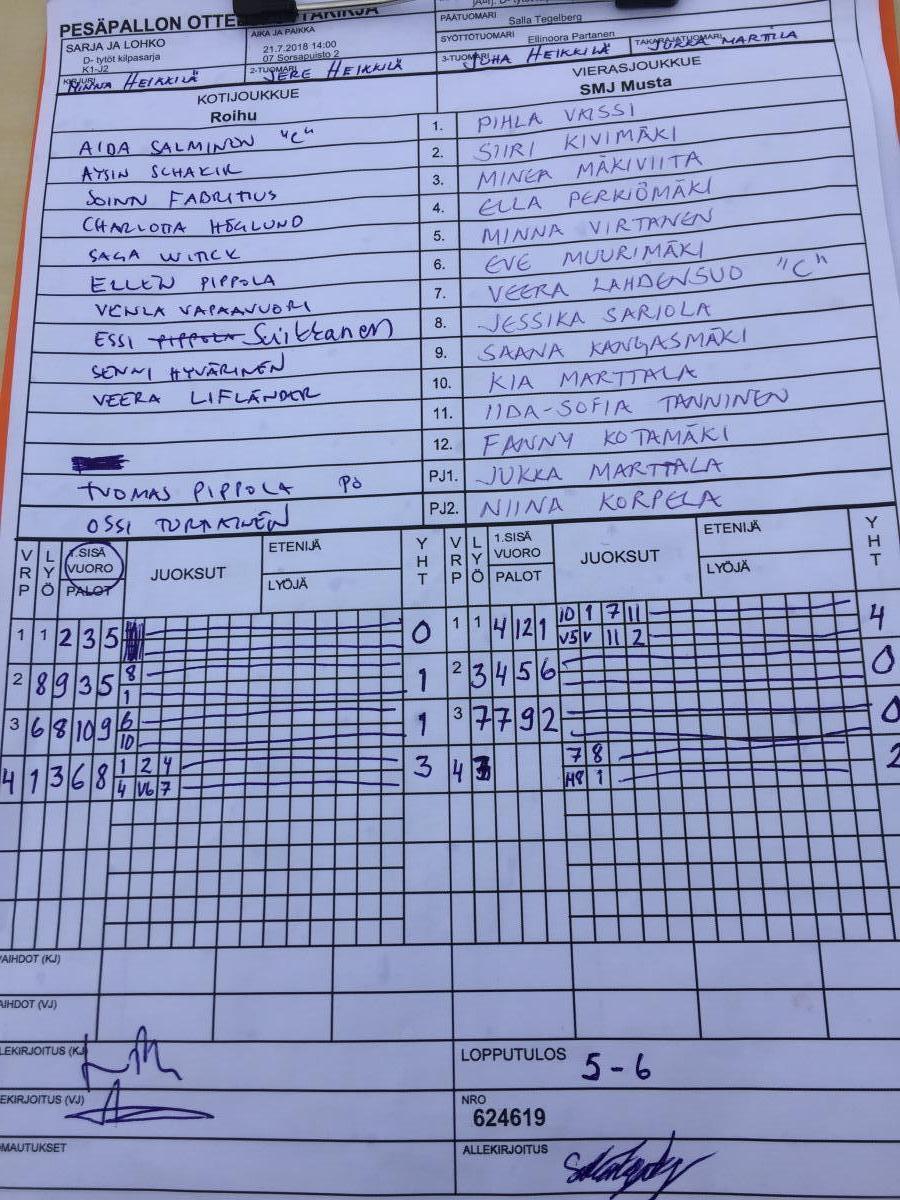 PESÄPALLON
SARJA JA LOHKO
D- tytöt kilpasarja
K1-J2
AIKA JA PAIKKA
21.7.2018 14:00
07 Sorsapuisto 2
PÄÄTUOMARI
Salla Tegelberg
SYÖTTÖTUOMARI Ellinoora Partanen
KIRJURI MINNA HEIKKILÄ
2-TUOMARI JERE HEIKKILÄ
3-TUOMARI JUHA HEIKKILÄ
TAKARAJATUOMARI JUKKA MARTTILA
KOTIJOUKKUE VIERASJOUKKUE
Roihu SMJ Musta
AIDA SALMINEN "C" 1. PIHLA VAISSI
AYSIN SCHAKIR 2. SIIRI KIVIMÄKI
JOINN FABRITIUS 3. MINEA MÄKIVIITA
CHARLOTTA HÖGLUND 4. ELLA PERKIÖMÄKI
SAGA WITICK 5. MINNA VIRTANEN
ELLEN PIPPOLA 6. EVE MUURIMÄKI
VENLA VAPAAVUORI 7. VEERA LAHDENSUO "C"
ESSI PIPPOLA Suikkanen 8. JESSIKA SARJOLA
SENNI HYVÄRINEN 9. SAANA KANGASMÄKI
VEERA LIFLÄNDER 10. KIA MARTTALA
11. IIDA-SOFIA TANNINEN
12. FANNY KOTAMÄKI
TUOMAS PIPPOLA PJ1. JUKKA MARTTALA
OSSI TURKAINEN PJ2. NIINA KORPELA
VRP LYÖ 1.SISÄ VUORO PALOT JUOKSUT ETENIJÄ LYÖJÄ YHT VRP LYÖ 1.SISÄ VUORO PALOT JUOKSUT ETENIJÄ LYÖJÄ YHT
1 1 2 3 5 0 1 1 4 12 1 10 1 7 11 4
V5 V 11 2
2 8 9 3 5 8 1 2 3 4 5 6 0
1
3 6 8 10 9 6 1 3 7 7 9 2 0
10
4 1 3 6 8 1 2 4 3 4 7 8 2
4 V6 7 H8 1
VAIHDOT (KJ)
VAIHDOT (VJ)
ALLEKIRJOITUS (KJ)
LOPPUTULOS 5-6
ALLEKIRJOITUS (VJ)
NRO
624619
HUOMAUTUKSET
ALLEKIRJOITUS